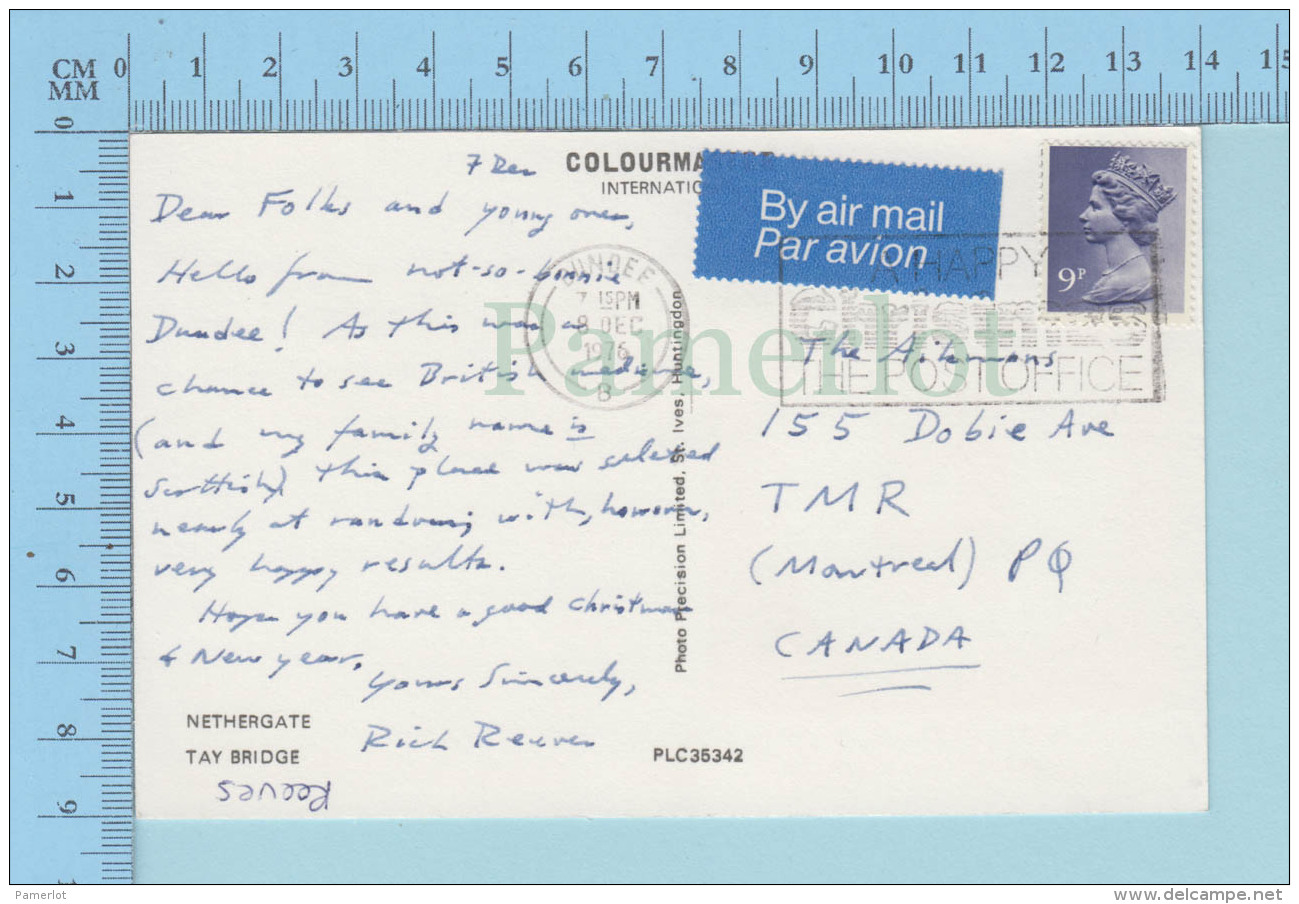 CM 0 1 2 3 4 5 6 7 8 9 10 11 12 13 14 15
MM
0
1
2
3
4
5
6
7
8
9
7 Dec
COLOURMA
INTERNATIO
By air mail
Par avion
9P
Dear Folks and young ones,
Hello from not-so-bonnie
Dundee! As this was a
chance to see British medicine,
(and my family name is
Scottish) this place was selected
nearly at random; with, however,
very happy results.
Hope you have a good Christmas
& New year.
Yours Sincerely,
Rich Reeves
NETHERGATE
TAY BRIDGE
PLC35342
Reeves
DUNDEE
7 15PM
8 DEC
1976
B
A HAPPY
Christmas
THE POST OFFICE
Photo Precision Limited, St. Ives, Huntingdon
The
155 Dobie Ave
TMR
(Montreal) PQ
CANADA
Pamerlot
Pamerlot
www.delcampe.net